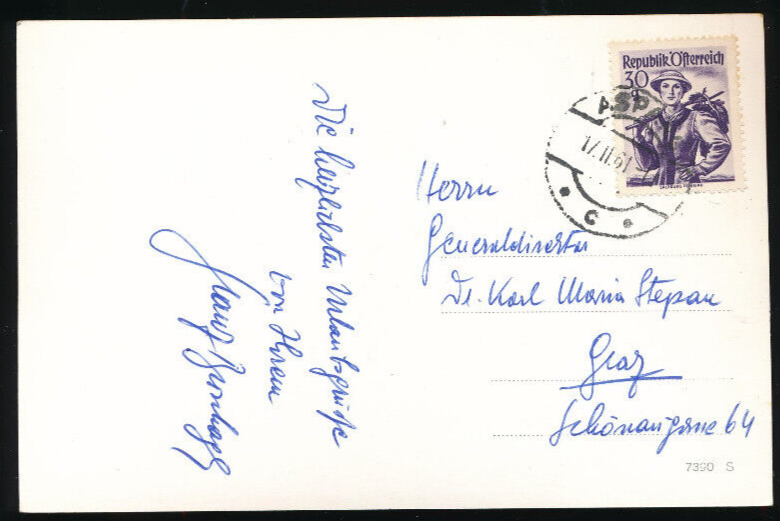 Die herzlichsten Urlaubsgrüße
von Ihrem
Franz
Republik Österreich
30 g
ASP
17.II.61
C
Herrn
Generaldirektor
Dr. Karl Maria Stepan
Graz
Schönaugasse 64
7390 S